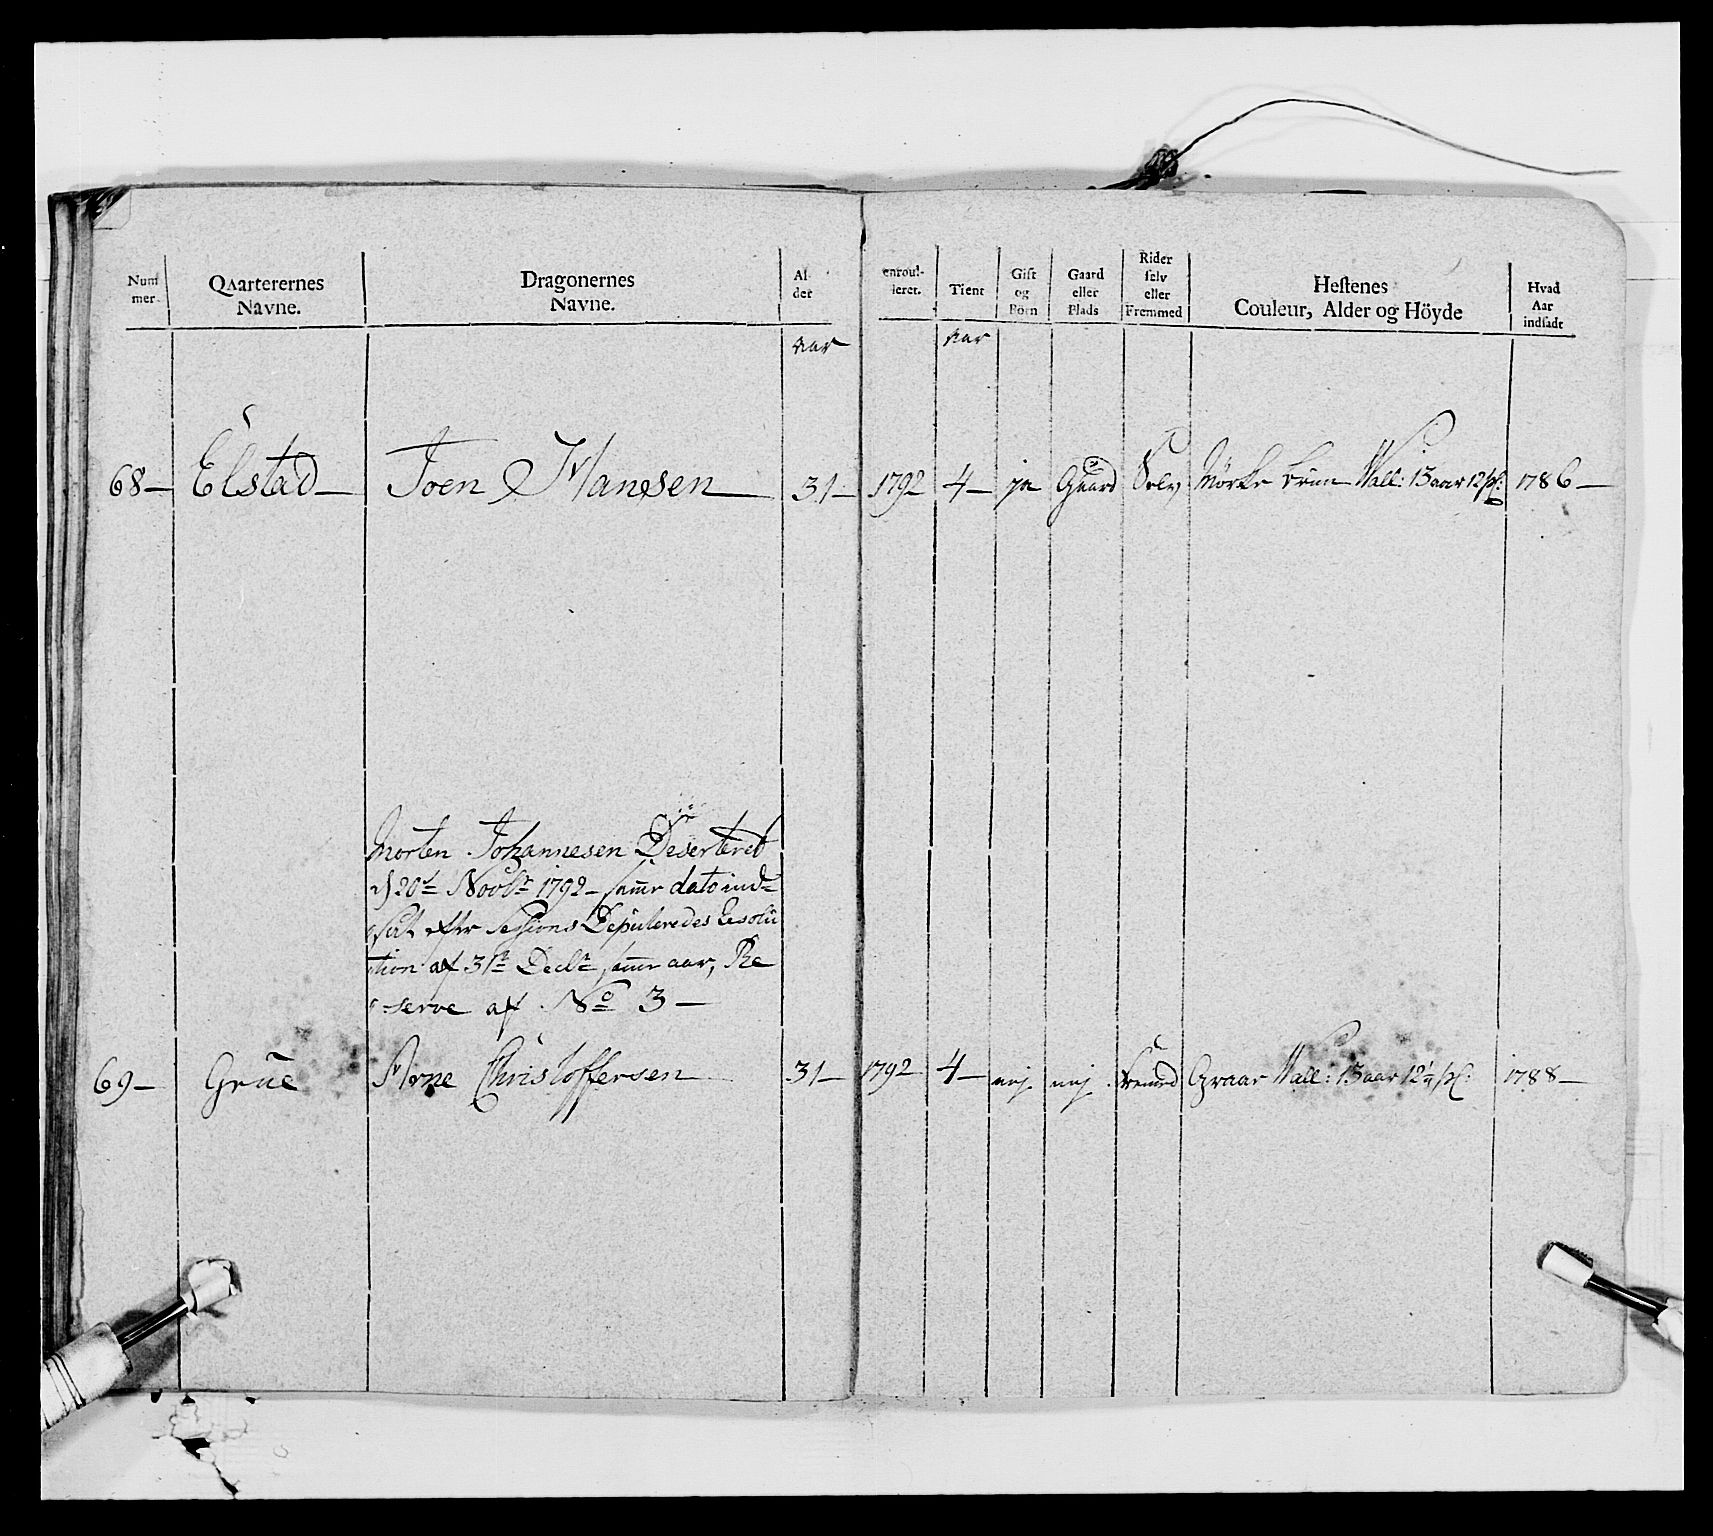 Num
mer
Qvarterernes
Navne.
Dragonernes
Navne.
Al
der
enroul-
leret.
Tient
Gift
og
Börn
Gaard
eller
Plads
Rider
selv
eller
Fremmed
Hestenes
Couleur, Alder og Höyde
Hvad
Aar
indsadt
Aar
Aar
68 — Elstad — Joen Hansen — 31 — 1792 4 — ja Gaard Selv Mörke brun Wall: 13 aar 12 1786 —
Morten Johannesen Deserteret
d 20de Novbr 1792 — samme dato ind-
sat efter Sessions Deputeredes Resolu
tion af 31te Decbr samme aar, Re
serve af No 3 —
69 — Grue Arne Christoffersen 31 — 1792 4 — nej nej fremed Graar Wall: 13 aar 12¼ 1788 —